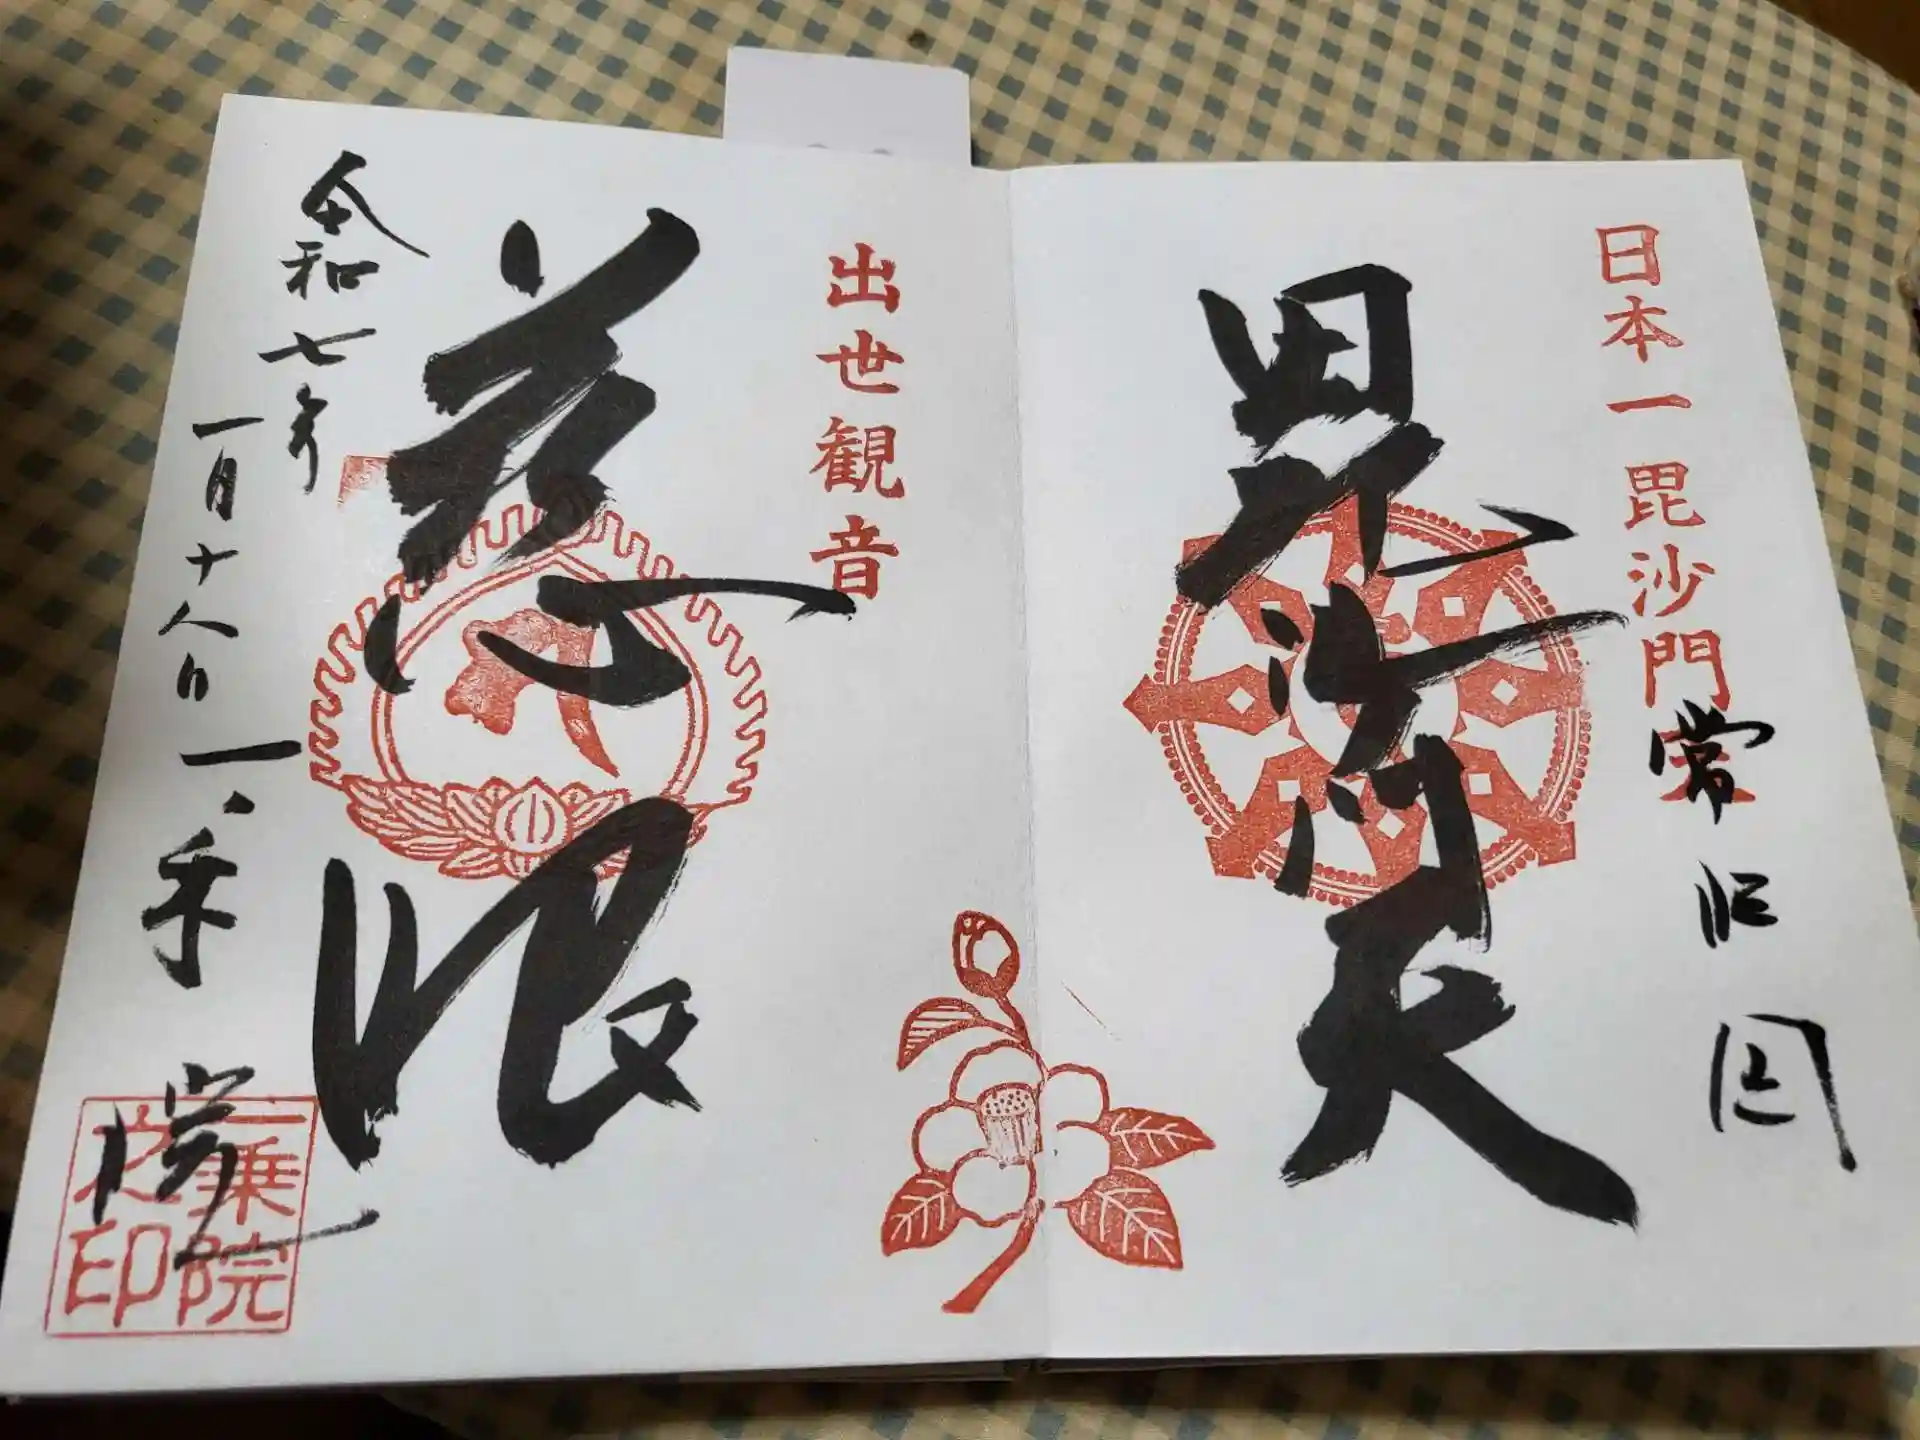 日本一毘沙門天
毘沙門天
常陸国
出世観音
慈眼
令和七年
一月十八日
一乗院
一乗院之印